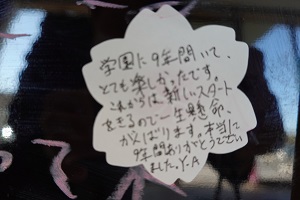 学園に9年間いて、
とても楽しかったです。
これからは新しいスタート
をきるので一生懸命、
がんばります。本当に
9年間ありがとうござい
ました。Y.A
って